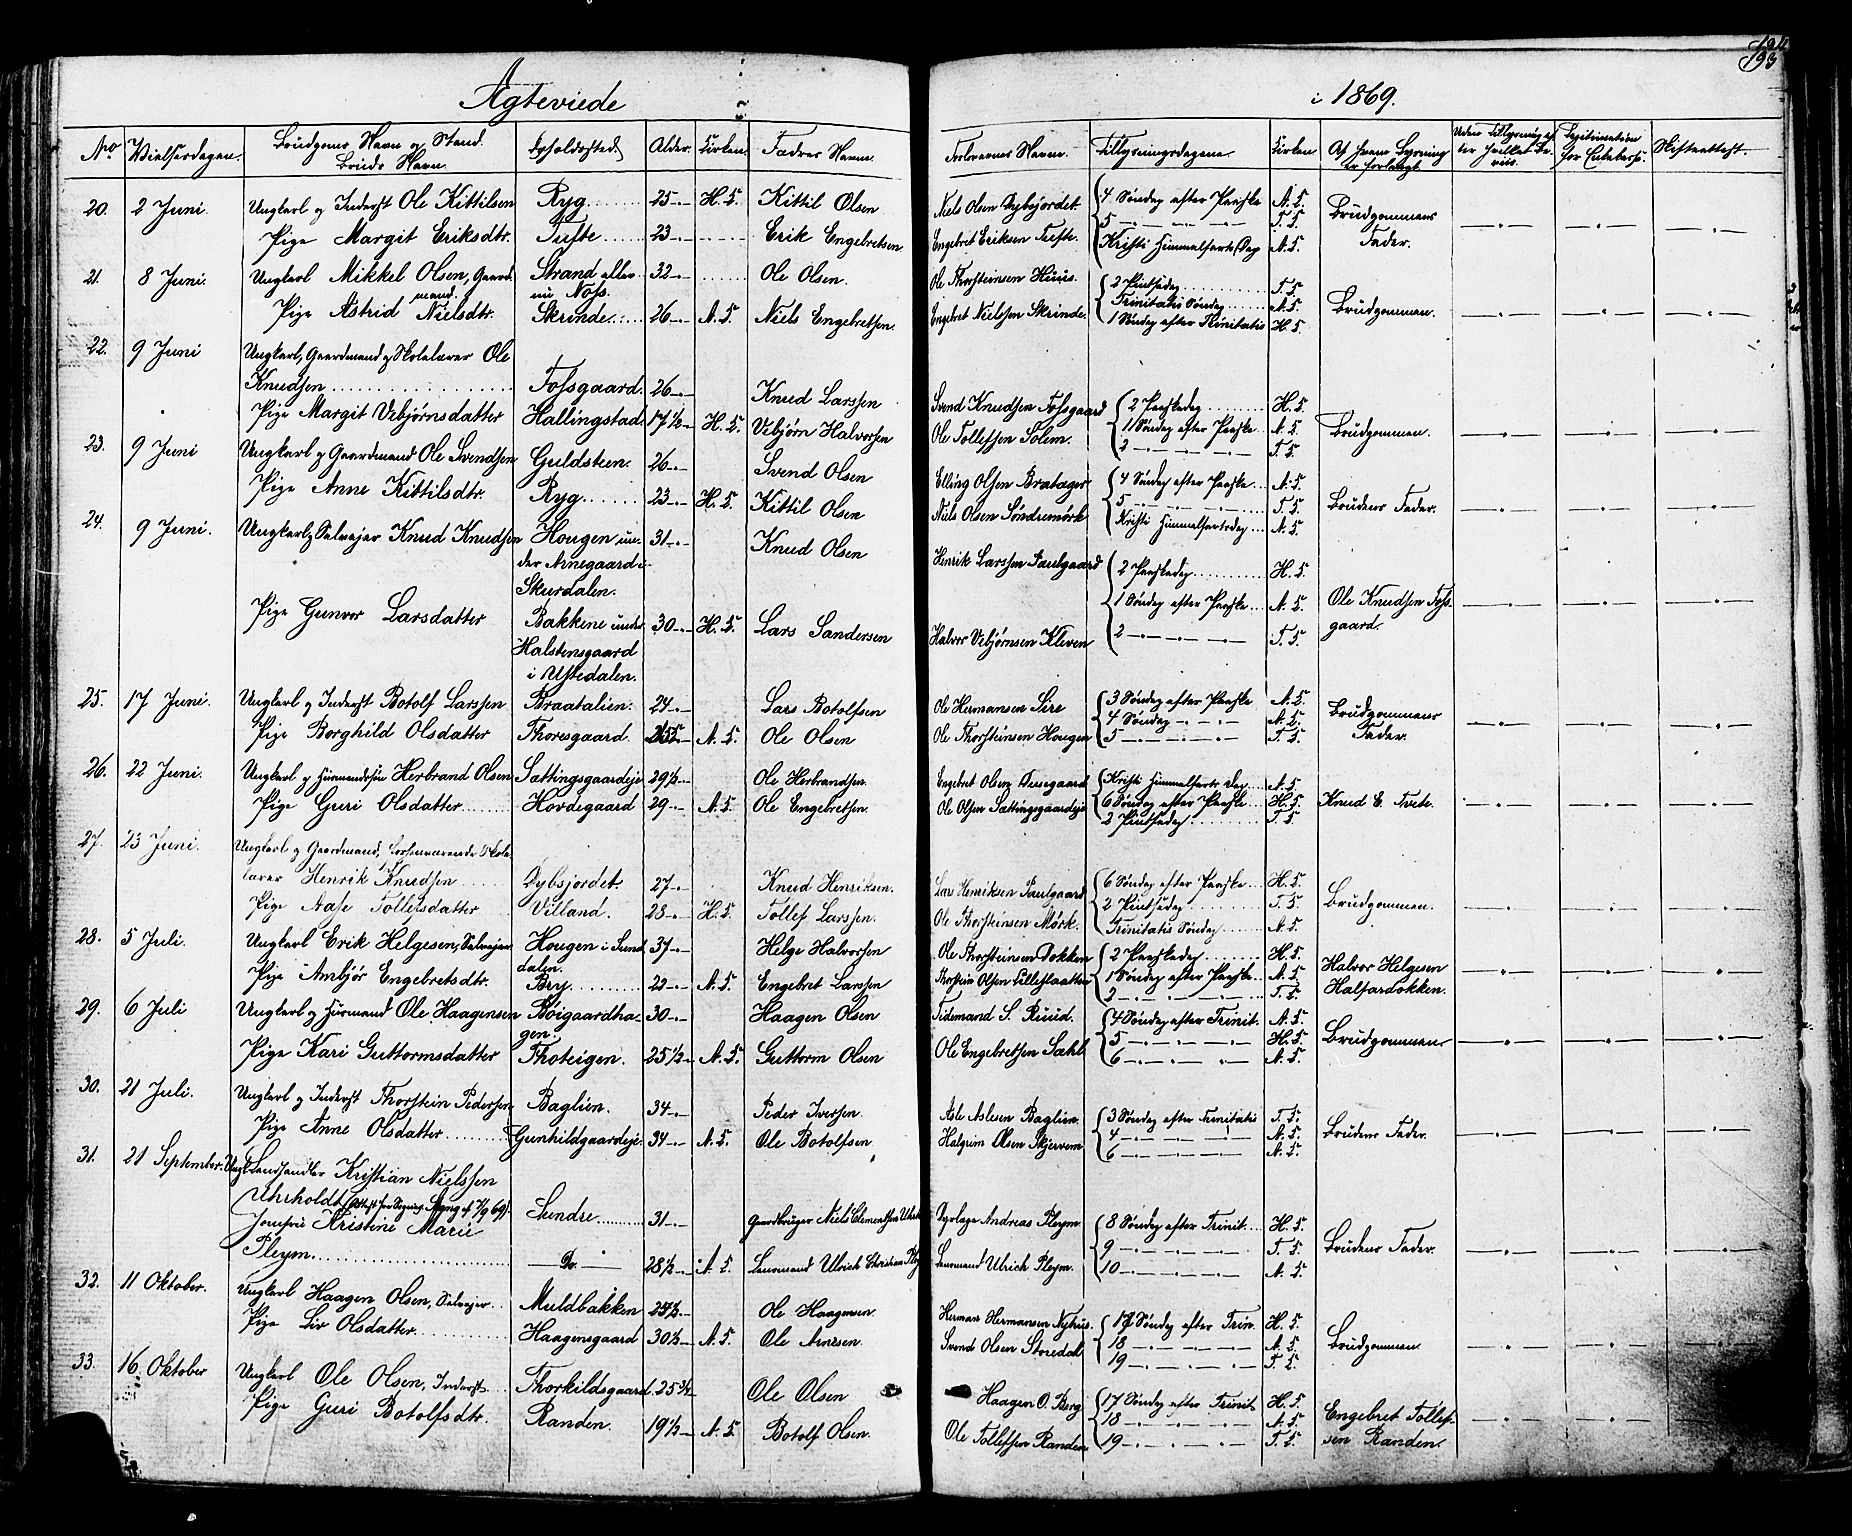 Ægteviede
No. Vielsesdagen. Brudgoms Navn og Stand. Opholdssted Alder. Kirken. Fædres Navne.
Bruds Navn.
20. 2 Juni. Ungkarl og Inderst Ole Kittilsen Ryg 25 H. K. Kittil Olsen
Pige Margit Eriksdtr. Tufte 23 Erik Engebretsen
21. 8 Juni. Ungkarl Mikkel Olsen, Gaard- Strand eller 32 Ole Olsen.
mand. nu Næss.
Pige Astrid Nielsdtr. Skrinde 26 N. K. Niels Engebretsen.
22. 9 Juni Ungkarl, Gaardmand og Skolelærer Ole
Knudsen Fossgaard. 26 Knud Larssen
Pige Margit Vebjørnsdatter Hallingstad. 17 1/2 H. K. Vebjørn Halvorsen
23. 9 Juni Ungkarl og Gaardmand Ole Svendsen Guldsteen. 26 Svend Olsen
Pige Anne Kittilsdtr. Ryg 23 H. K. Kittil Olsen
24. 9 Juni. Ungkarl og Selveier Knud Knudsen Hougen un- 31 Knud Olsen
der Arnegaard i
Skurdalen.
Pige Gunvor Larsdatter Bakkene under 30 H. K. Lars Sandersen
Halstensgaard
i Ustedalen.
25. 17 Juni. Ungkarl og Inderst Botolf Larssen Braatalien. 24 Lars Botolfsen
Pige Borghild Olsdatter Thoresgaard. N. K. Ole Olsen
26. 22 Juni. Ungkarl og Husmandssøn Herbrand Olsen Sattingsgaardeje 29 1/2 Ole Herbrandsen.
Pige Guri Olsdatter Hovdegaard 29 N. K. Ole Engebretsen.
27. 23 Juni. Ungkarl og Gaardmand, forhenværende Skole-
lærer Henrik Knudsen Dybsjordet. 27 Knud Henriksen.
Pige Aase Tollefsdatter Villand. 28 H. K. Tollef Larssen.
28. 5 Juli. Ungkarl Erik Helgesen, Selveier Hougen i Sund- 37 Helge Halvorsen
dalen.
Pige Ambjør Engebretsdtr. Bry 22 N. K. Engebret Larssen
29. 6 Juli Ungkarl og Husmand Ole Haagensen Bøigaardha- 30 Haagen Olsen
gen.
Pige Kari Guttormsdatter Thoteigen. 25 1/2 N. K. Guttorm Olsen
30. 21 Juli. Ungkarl og Inderst Thorstein Pedersen Baglien. 34 Peder Iversen.
Pige Anne Olsdatter Gunhildgaardeje 34 N. K. Ole Botolfsen
31. 21 September. Ungk. Landhandler Kristian Nielssen
Uhrholdt
Jomfru Kristine Marie Sundre 31 Gaardbruger Niels Clementsen
Pleym Do. 28 1/2 N. K. Lensmand Ulrich Christian
32. 11 Oktober. Ungkarl Haagen Olsen, Selveier Muldbakken Ole Haagensen
Pige Liv Olsdatter Haagensgaard 30 1/2 N. K. Ole Arnesen.
33. 16 Oktober Ungkarl Ole Olsen, Inderst Thorkildsgaard 25 3/4 Ole Olsen
Pige Guri Botolfsdtr. Randen. 19 1/2 N. K. Botolf Olsen.
193
i 1869.
Forlovernes Navne. Tillysningsdagene. Kirken Af hvem Lysning er forlangt. Uden Tillysning efter hvilket Be-viis. Legitimation for Enkebers. Skifteattest.
Niels Olsen Dybsjordet. 4 Søndag efter Paaske N. K. Brudgommens
5 T. K. Fader.
Engebret Eriksen Tufte. Kristi Himmelfarts Dag N. K.
Ole Thorsteinsen Huus. 2 Pintsedag T. K.
Trinitatis Søndag N. K. Brudgommen.
Engebret Nielssen Skrinde. 1 Søndag efter Trinitatis H. K.
Svend Knudsen Fossgaard 2 Paaskedag H. K.
Ole Tollefsen Solem. 1 Søndag efter Paaske N. K. Brudgommen.
2 T. K.
Elling Olsen Bratager 4 Søndag efter Paaske N. K.
5 T. K. Brudens Fader.
Niels Olsen Søndremørk Kristi Himmelfartsdag N. K.
Henrik Larssen Paulgaard 2 Paaskedag H. K.
1 Søndag efter Paaske N. K. Ole Knudsen Foss-
gaard.
Halvor Vebjørnsen Kleven 2 T. K.
Ole Hermansen Sire 3 Søndag efter Paaske N. K. Brudgommens
4 Søndag N. K. Fader.
Ole Thorsteinsen Hougen 5 T. K.
Engebret Olsen Kristi Himmelfarts Dag N. K.
Ole Olsen Sattingsgaardeje 6 Søndag efter Paaske H. K. Knud E. Tvete.
2 Pintsedag T. K.
Lars Henriksen Paulgaard 6 Søndag efter Paaske H. K.
2 Pintsedag T. K. Brudgommen.
Ole Thorsteinsen Mørk. Trinitatis Søndag N. K.
Ole Thorsteinsen Dokken 2 Paaskedag H. K. Halvor Helgesen
Thorstein Olsen 1 Søndag efter Paaske N. K. Halfardokken.
2 T. K.
Tidemand S. Ruud. 4 Søndag efter Trinit. N. K.
5 H. K. Brudgommen
Ole Engebretsen Sæhl 6 N. K.
Asle Aslesen Baglien. 3 Søndag efter Trinitatis T. K.
4 N. K. Brudens Fader.
Halgrim Olsen Skjervem 6 N. K.
Dyrlæge Andreas Pleym 8 Søndag efter Trinit. H. K.
9 T. K. Brudens Fader.
Lensmand Ulrich Pleym. 10 N. K.
Herman Hermansen Nyhus. 17 Søndag efter Trin. H. K.
18 N. K. Brudgommen
Svend Olsen Storedal 19 T. K.
Haagen O. Berg 17 Søndag efter Trinit. H. K.
18 N. K. Engebret Tollef-
Ole Tollefsen Randen 19 T. K. sen Randen.